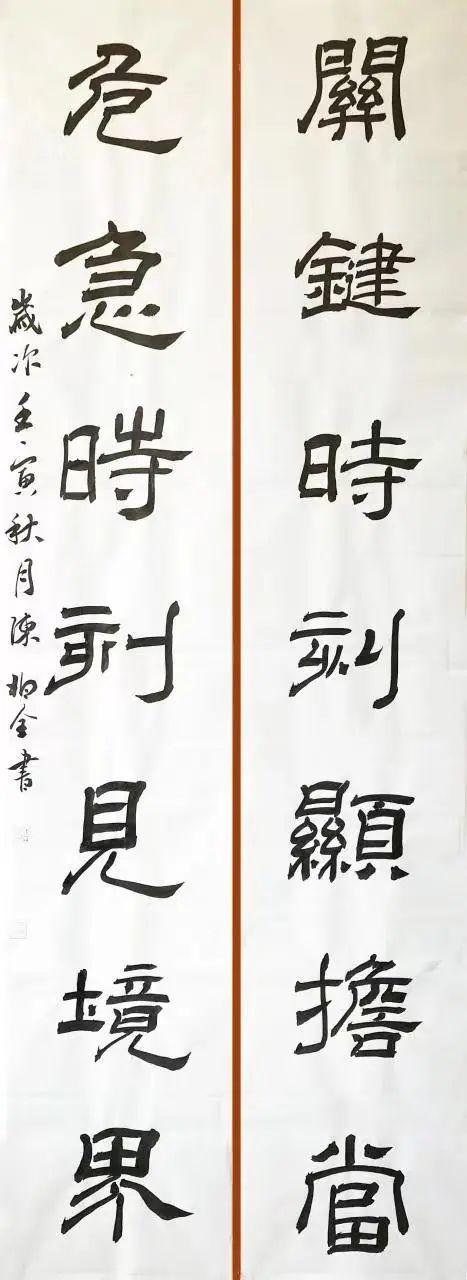 關鍵時刻顯擔當
危急時刻見境界
歲次壬寅秋月陳柏全書